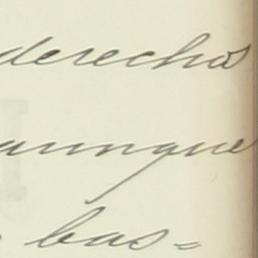 derechos
aunque
bas=